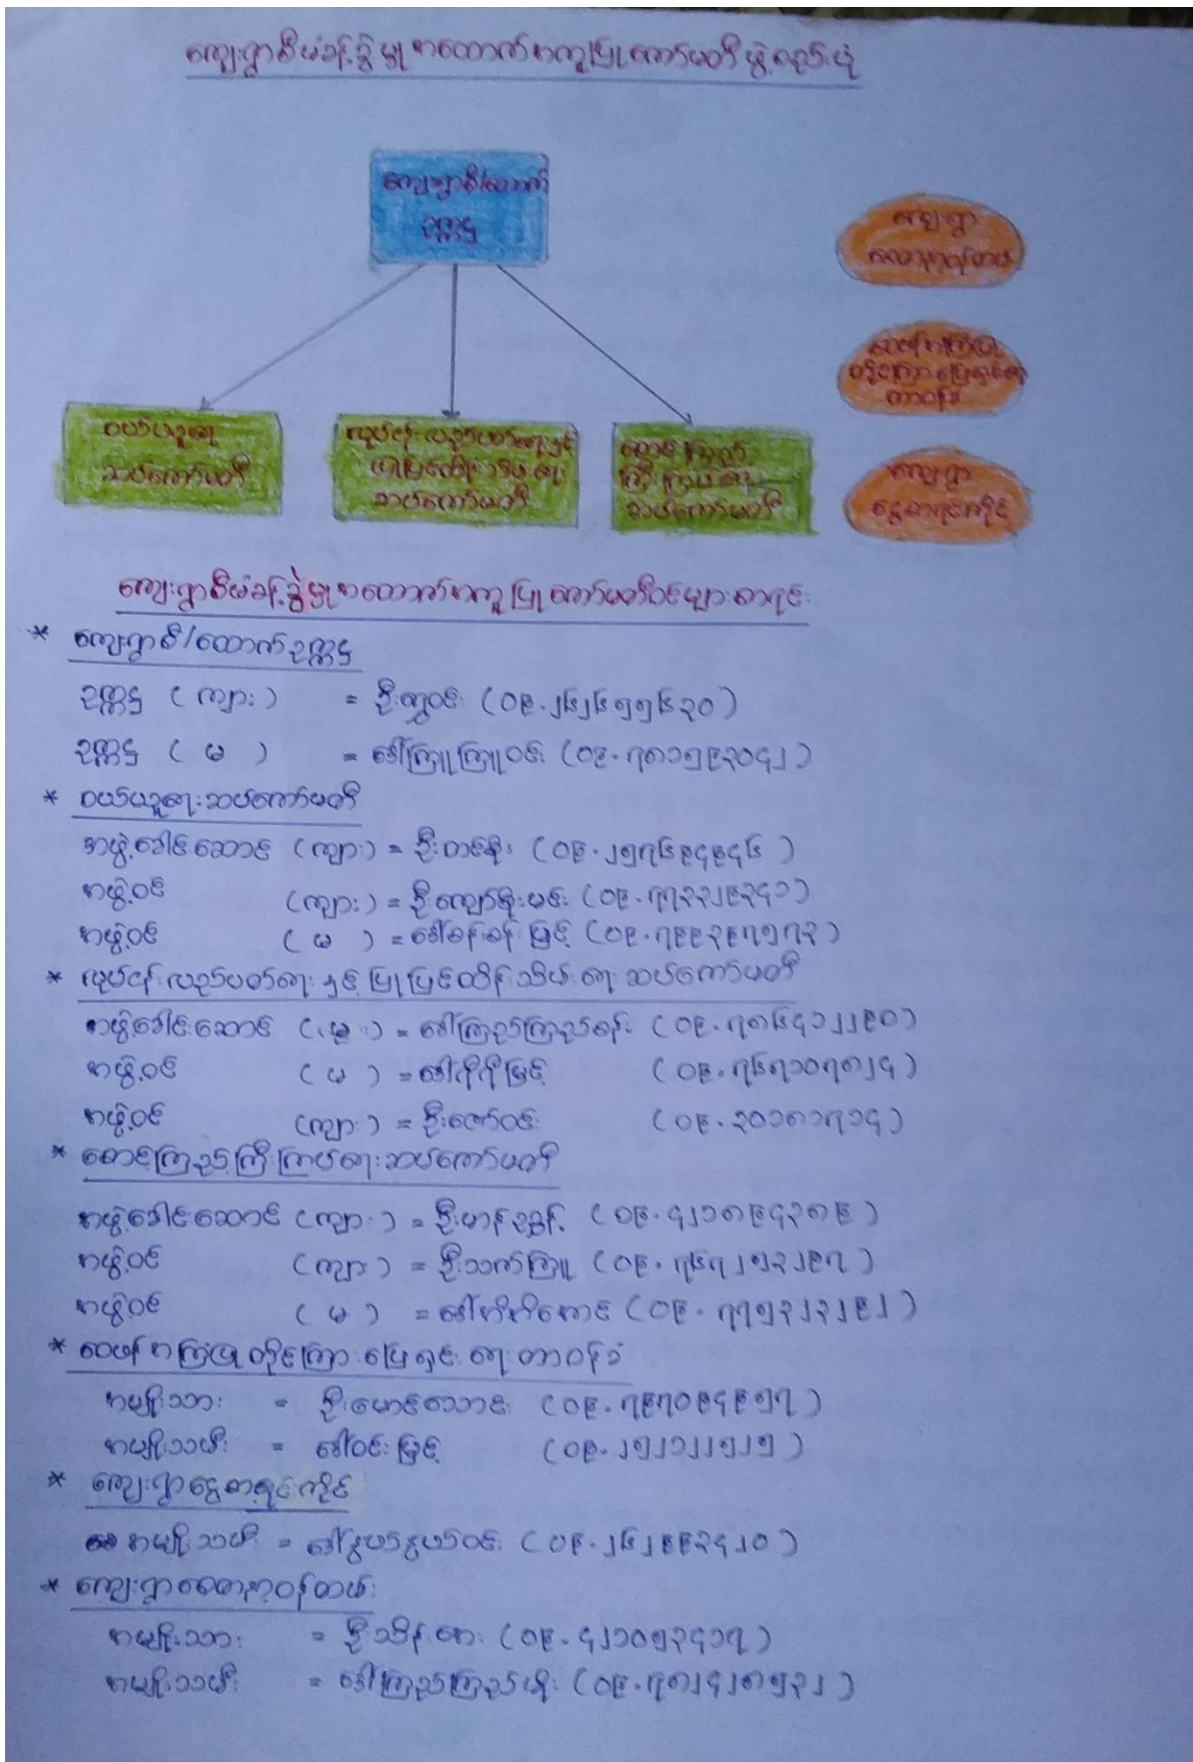 ကျေးရွာစီမံခန့်ခွဲမှုအထောက်အကူပြုကော်မတီဖွဲ့စည်းပုံ
ကျေးရွာစီ/ထောက်
ဥက္ကဌ
ကျေးရွာ
စေတနာ့ဝန်ထမ်း
ဝေဖန်အကြံပြု
တိုင်ကြားဖြေရှင်းရေး
တာဝန်ခံ
ကျေးရွာ
ငွေစာရင်းကိုင်
ဝယ်ယူရေး
ဆပ်ကော်မတီ
လုပ်ငန်းလည်ပတ်ရေးနှင့်
ပြုပြင်ထိန်းသိမ်းရေး
ဆပ်ကော်မတီ
စောင့်ကြည့်
ကြီးကြပ်ရေး
ဆပ်ကော်မတီ
ကျေးရွာစီမံခန့်ခွဲမှုအထောက်အကူပြုကော်မတီဝင်များစာရင်း
* ကျေးရွာစီ/ထောက်ဥက္ကဌ
ဥက္ကဌ (ကျား) = ဦးထွဏ်ဝင်း (၀၉.၂၆၂၆၅၅၆၃၀)
ဥက္ကဌ ( မ ) = ဒေါ်ကြူကြူဝင်း (၀၉.၇၈၁၅၉၃၀၄၂)
* ဝယ်ယူရေးဆပ်ကော်မတီ
အဖွဲ့ခေါင်းဆောင် (ကျား) = ဦးတင်စိုး (၀၉.၂၅၇၆၉၄၉၄၆)
အဖွဲ့ဝင် (ကျား) = ဦးကျော်စိုးမင်း (၀၉.၇၇၃၃၂၉၃၄၁)
အဖွဲ့ဝင် ( မ ) = ဒေါ်စန်းစန်းမြင့် (၀၉.၇၉၉၃၉၇၅၇၃)
* လုပ်ငန်းလည်ပတ်ရေးနှင့်ပြုပြင်ထိန်းသိမ်းရေးဆပ်ကော်မတီ
အဖွဲ့ခေါင်းဆောင် ( မ ) = ဒေါ်ကြည်ကြည်စန်း (၀၉.၇၈၆၄၁၂၂၉၀)
အဖွဲ့ဝင် ( မ ) = ဒေါ်ကိုကိုမြင့် (၀၉.၇၆၇၁၀၇၈၂၄)
အဖွဲ့ဝင် (ကျား) = ဦးဇော်ဝင်း (၀၉.၃၀၁၈၁၇၁၄)
* စောင့်ကြည့်ကြီးကြပ်ရေးဆပ်ကော်မတီ
အဖွဲ့ခေါင်းဆောင် (ကျား) = ဦးဟန်ညွှန့် (၀၉.၄၂၁၈၉၄၃၈၉)
အဖွဲ့ဝင် (ကျား) = ဦးသက်ကြူ (၀၉.၇၆၇၂၅၃၂၉၇)
အဖွဲ့ဝင် ( မ ) = ဒေါ်တိတိအောင် (၀၉.၇၇၅၃၂၃၂၉၂)
* ဝေဖန်အကြံပြုတိုင်ကြားဖြေရှင်းရေးတာဝန်ခံ
အမျိုးသား = ဦးမောင်သောင်း (၀၉.၇၉၇၀၉၄၉၅၇)
အမျိုးသမီး = ဒေါ်ဝင်းမြင့် (၀၉.၂၅၂၁၂၂၅၂၅)
* ကျေးရွာငွေစာရင်းကိုင်
အမျိုးသမီး = ဒေါ်နွယ်နွယ်ဝင်း (၀၉.၂၆၂၉၉၃၄၂၀)
* ကျေးရွာစေတနာ့ဝန်ထမ်း
အမျိုးသား = ဦးသိန်းဇော (၀၉.၄၂၁၀၅၃၄၁၇)
အမျိုးသမီး = ဒေါ်ကြည်ကြည်မိုး (၀၉.၇၈၂၄၂၈၅၃၂)